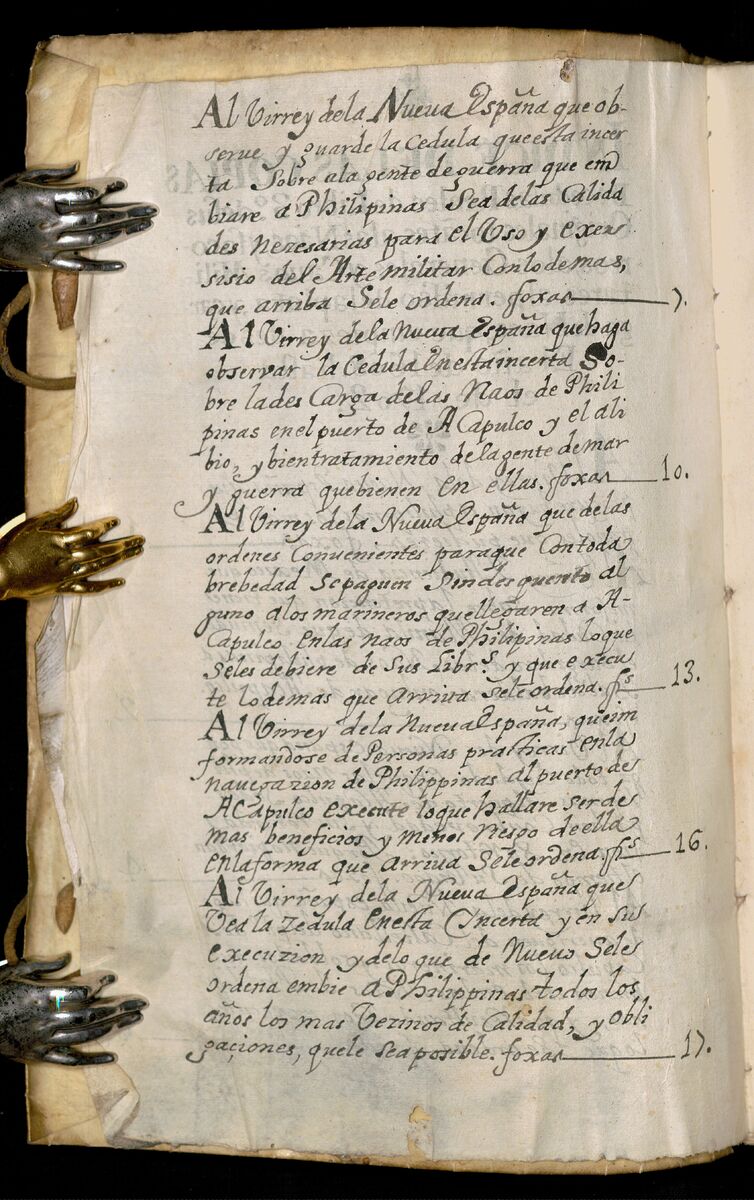 Al Virrey dela Nueva España que ob-
serve y guarde la Cedula que esta incer
ta Sobre ala gente de guerra que em
biare a Philipinas Sea delas Calida
des nezesarias para el Uso y exer
sisio del Arte militar Conlodemas,
que arriba Sele ordena. foxas 7.
Al Virrey dela Nueva España que haga
observar la Cedula En esta incerta So-
bre lades Carga delas Naos de Phili
pinas en el puerto de A Capulco y el ali
bio, y bien tratamiento dela gente de mar
y guerra que bienen en ellas. foxas 10.
Al Virrey dela Nueva España que delas
ordenes Convenientes para que Contoda
brebedad Sepaguen Sin des quento al
guno alos marineros que llegaren a A-
Capulco en las naos de Philipinas lo que
Seles debiere de Sus Libr.s y que execu
te lodemas que Arriva Sele ordena. fs 13.
Al Virrey dela Nueva España, que im
formandose de Personas practicas en la
navegazion de Philippinas al puerto de
A Capulco execute lo que hallare ser de
mas beneficios y menos riesgo de ella
en la forma que Arriva Sele ordena. fs 16.
Al Virrey dela Nueva España que
Vea la Zedula En esta Cyncerta y en sus
execuzion y de lo que de Nuevo Seles
ordena embie a Philippinas todos los
años los mas Vezinos de Calidad, y obli
gaçiones, que le sea posible. foxas 17.